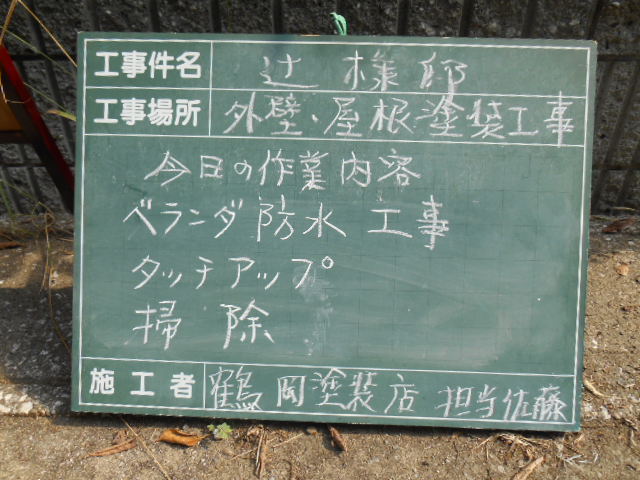 工事件名 辻様邸
工事場所 外壁・屋根塗装工事
今日の作業内容
ベランダ防水工事
タッチアップ
掃除
施工者 鶴岡塗装店 担当佐藤